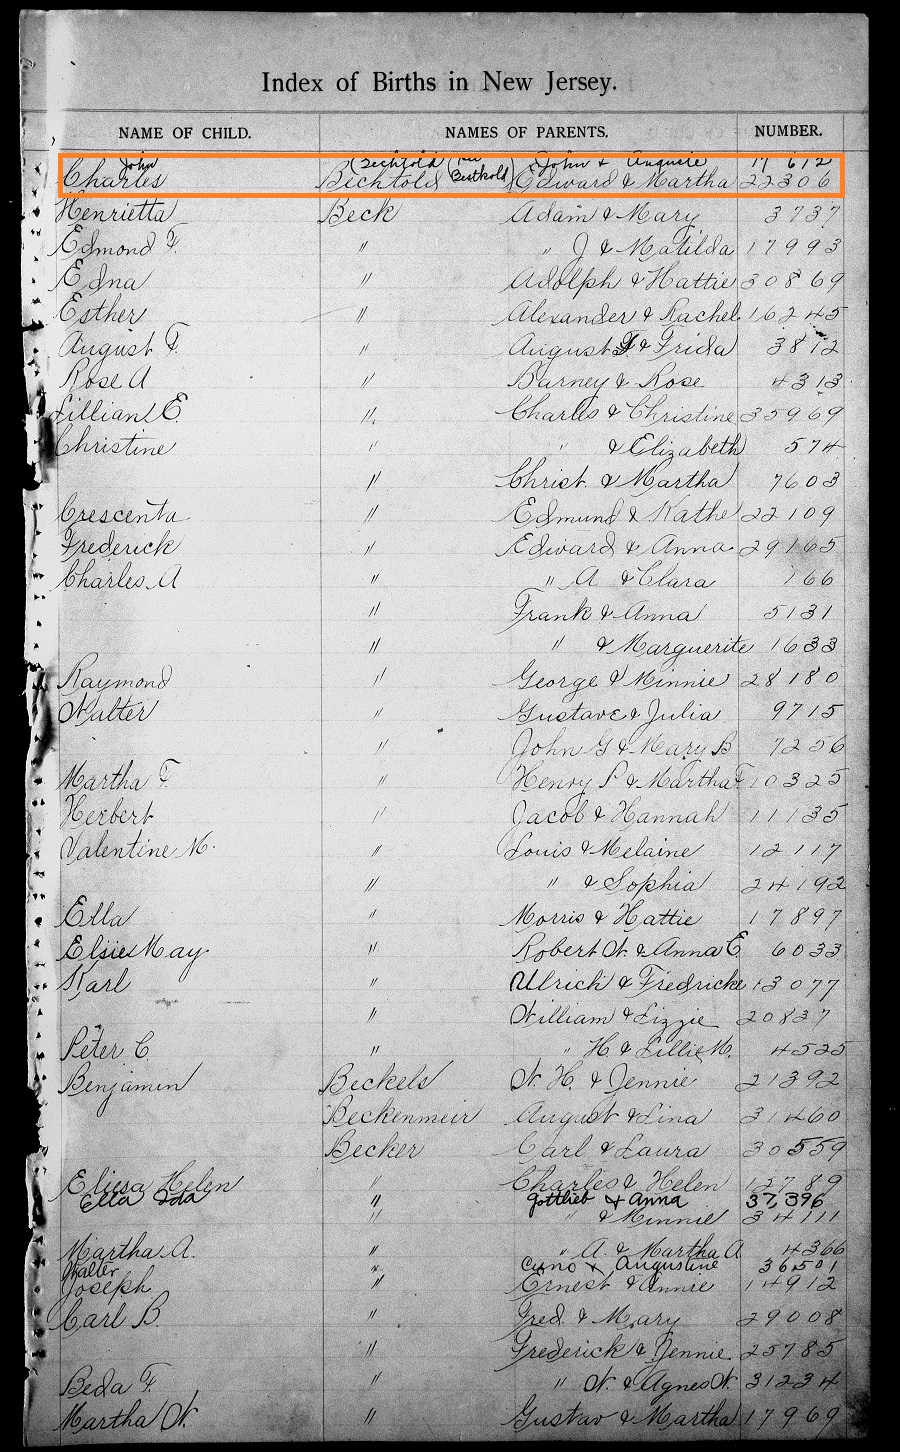 Index of Births in New Jersey.
NAME OF CHILD. NAMES OF PARENTS. NUMBER.
John Bechtold (See Berthold) John & Auguste 17612
Charles Bechtold Edward & Martha 22306
Henrietta Beck Adam & Mary 3737
Edmond F. " " J & Matilda 17993
Edna " Adolph & Hattie 30869
Esther " Alexander & Rachel 16245
August F. " August F & Frida 3812
Rose A " Barney & Rose 4313
Lillian E. " Charles & Christine 35969
Christine " " & Elizabeth 574
" Christ. & Martha 7603
Crescenta " Edmund & Kathe 22109
Frederick " Edward & Anna 29165
Charles A " " A & Clara 166
" Frank & Anna 5131
" " & Marguerite 1633
Raymond " George & Minnie 28180
Walter " Gustave & Julia 9715
" John G & Mary B 7256
Martha F. " Henry P & Martha F. 10325
Herbert " Jacob & Hannah 11135
Valentine M. " Louis & Melaine 12117
" " & Sophia 24192
Ella " Morris & Hattie 17897
Elsie May " Robert W. & Anna E. 6033
Karl " Ulrich & Fredricke 13077
" William & Lizzie 20837
Peter C. " " H. & Lillie M. 4525
Benjamin Beckels W. H. & Jennie 21392
Beckenmeir August & Lina 31460
Becker Carl & Laura 30559
Eliesa Helen " Charles & Helen 12789
Ella Ida " Gottlieb & Anna 37,396
" " & Minnie 34111
Martha A. " " A. & Martha A 4366
Walter " Cuno & Augustine 36501
Joseph " Ernest & Annie 14912
Carl B. " Fred. & Mary 29008
" Frederick & Jennie 25785
Beda F. " " W. & Agnes W. 31234
Martha W. " Gustav & Martha 17969